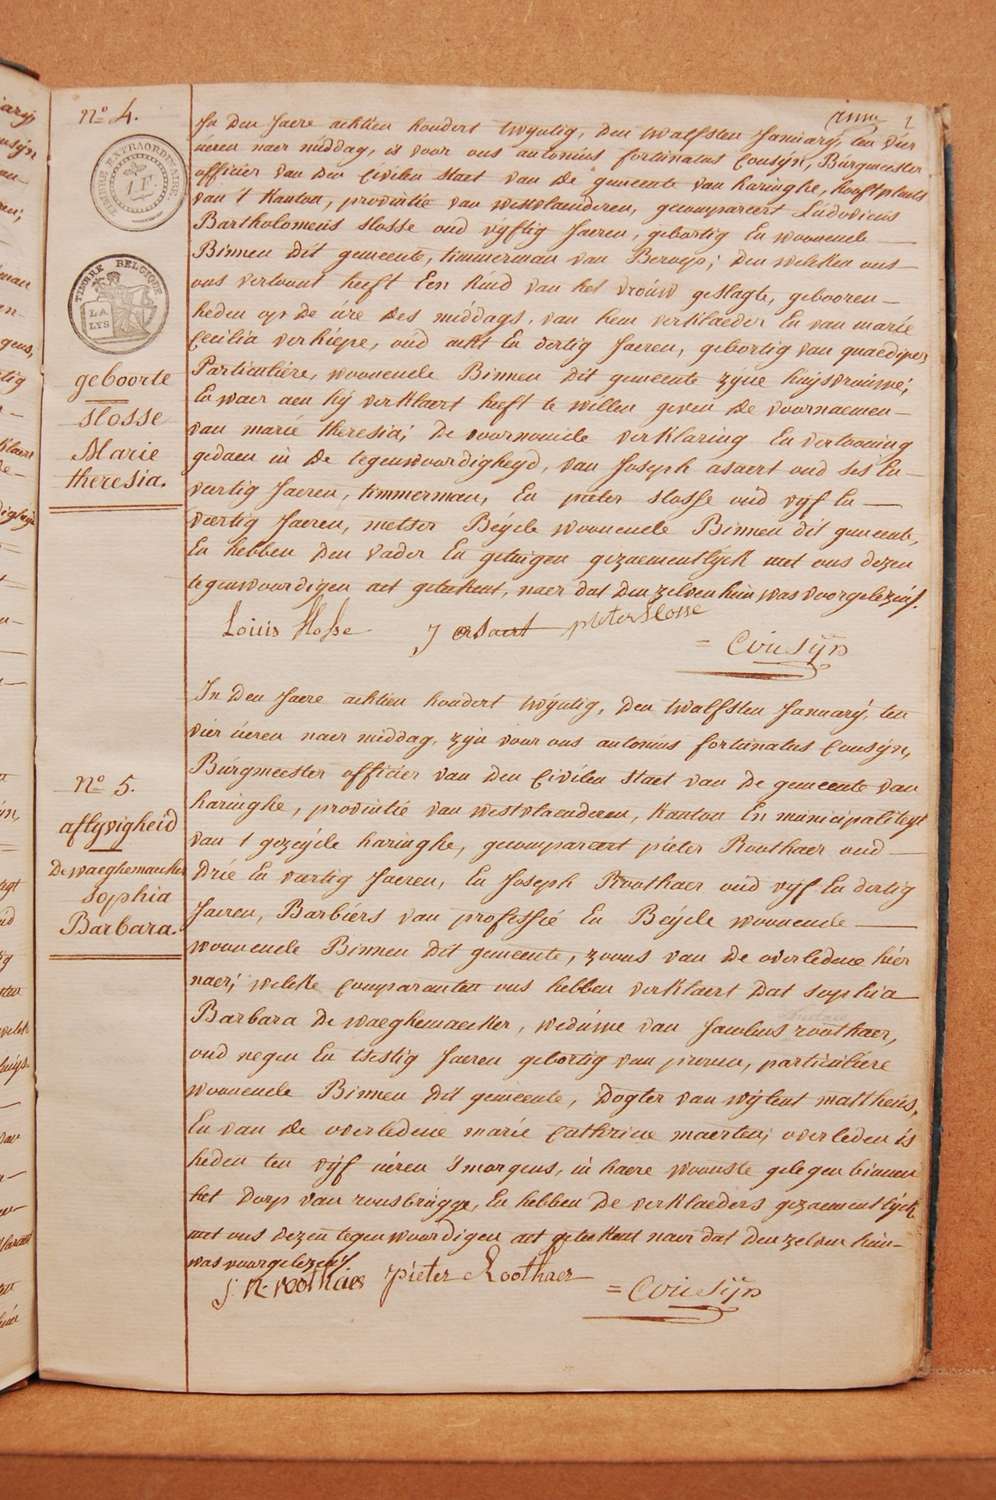 N.o 4.
TIMBRE EXTRAORDINAIRE
1 F.
TIMBRE BELGIQUE
LA
LYS
geboorte
Slosse
Marie
theresia.
In Den Jaere achtien hondert twijntig, Den twalfsten January, ten vier
üeren naer middag, is voor ons antonius fortunatus Cousyn, Burgmeester
officier van Den Civilen Staet van De gemeente van haringhe, hooftplaets
van 't Kanton, provintie van westvlaenderen, gecompareert Ludovicus
Bartholomeüs Slosse oud vijftig Jaeren, gebortig En woonende
Binnen Dit gemeente, timmerman van Beroep; Den welken ons
ons vertoont heeft Een Kind van het vroüw geslagte, gebooren
heden op De üre Des middags, van hem verklaeder En van marie
Cecilia verhiepe, oud acht En dertig Jaeren, gebortig van quaedijper
Particuliére, woonende Binnen Dit gemeente zyne huijsvrouwe;
En waer aen hij verklaert heeft te willen geven De voornaemen
van marie theresia; De voornomde verklaring En vertooning
gedaen in De tegenwoordigheyd, van Joseph asaert oud ses En
veertig Jaeren, timmerman, En pieter Slosse oüd vijf En
veertig Jaeren, metser Beyde woonende Binnen dit gemeente,
En hebben Den vader En getuigen gezaementlyck met ons dezen
tegenwoordigen act geteekent, naer dat Den zelven hun was voorgelezen.
Louis Slosse J asaert pieter Slosse
= Cousijn
N.o 5.
aflyvigheid
De waeghemaecker
Sophia
Barbara.
In Den Jaere achtien hondert twijntig, Den twalfsten January, ten
vier üeren naer middag, zyn voor ons antonius fortunatus Cousijn,
Bürgmeester officier van Den Civilen Staet van De gemeente van
haringhe, provintie van westvlaenderen, Kanton En municipaliteyt
van 't gezeyde haringhe, gecompareert pieter Roothaer oud
Drie En veertig Jaeren, En Joseph Roothaer oüd vijf En dertig
Jaeren, Barbiers van professie En Beyde woonende
woonende Binnen Dit gemeente, zoons van De overledene hier
naer; welke Comparanten ons hebben verklaert Dat Sophia
Barbara De waeghemaecker, weduwe van Jacobus roothaer,
oud negen En tsestig Jaeren gebortig van proven, particuliére
woonende Binnen Dit gemeente, Dogter van wijlent mattheüs,
En van De overledene marie Cathrine maerten; overleden is
heden ten vijf üeren 's morgens, in haere woonste gelegen binnen
het Dorp van rousbrügge, En hebben De verklaeders gezaementlijck
met ons Dezen tegenwoordigen act geteekent naer dat Den zelven hun
was voorgelezen.
J: R: roothaer pieter Roothaer
= Cousijn